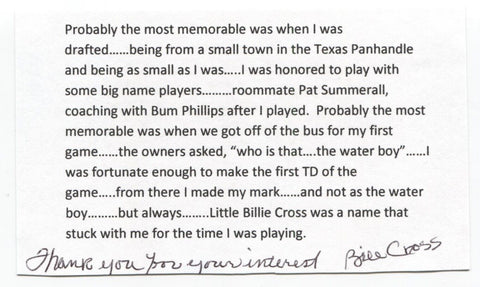 Probably the most memorable was when I was
drafted......being from a small town in the Texas Panhandle
and being as small as I was.....I was honored to play with
some big name players.........roommate Pat Summerall,
coaching with Bum Phillips after I played.  Probably the most
memorable was when we got off of the bus for my first
game......the owners asked, “who is that....the water boy”......I
was fortunate enough to make the first TD of the
game.....from there I made my mark......and not as the water
boy.........but always........Little Billie Cross was a name that
stuck with me for the time I was playing.
Thank you for your interest Bill Cross